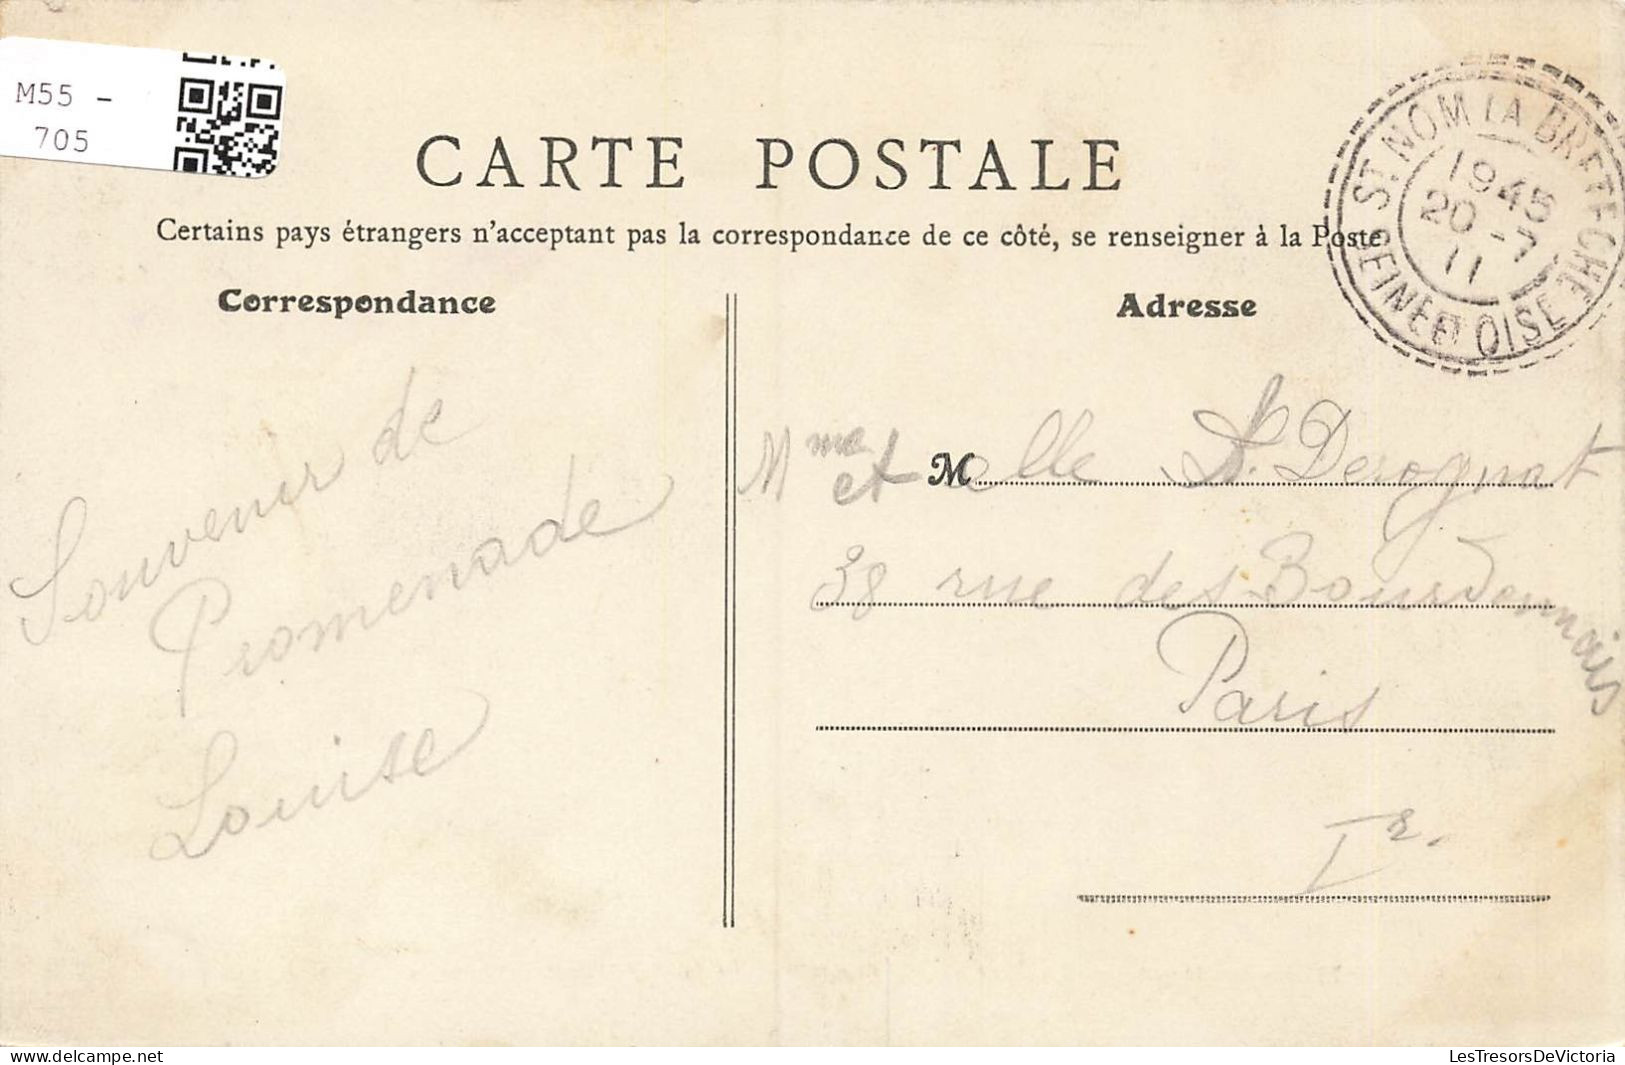 M55 -
705
CARTE POSTALE
Certains pays étrangers n'acceptant pas la correspondance de ce côté, se renseigner à la Poste
Correspondance
Adresse
ST NOM LA BRETECHE
1945
20 -7
11
SEINE ET OISE
Souvenir de
Promenade
Louise
Mme et Melle S. Derognat
38 rue des Bourdonnais
Paris
Ir.
www.delcampe.net
LesTresorsDeVictoria